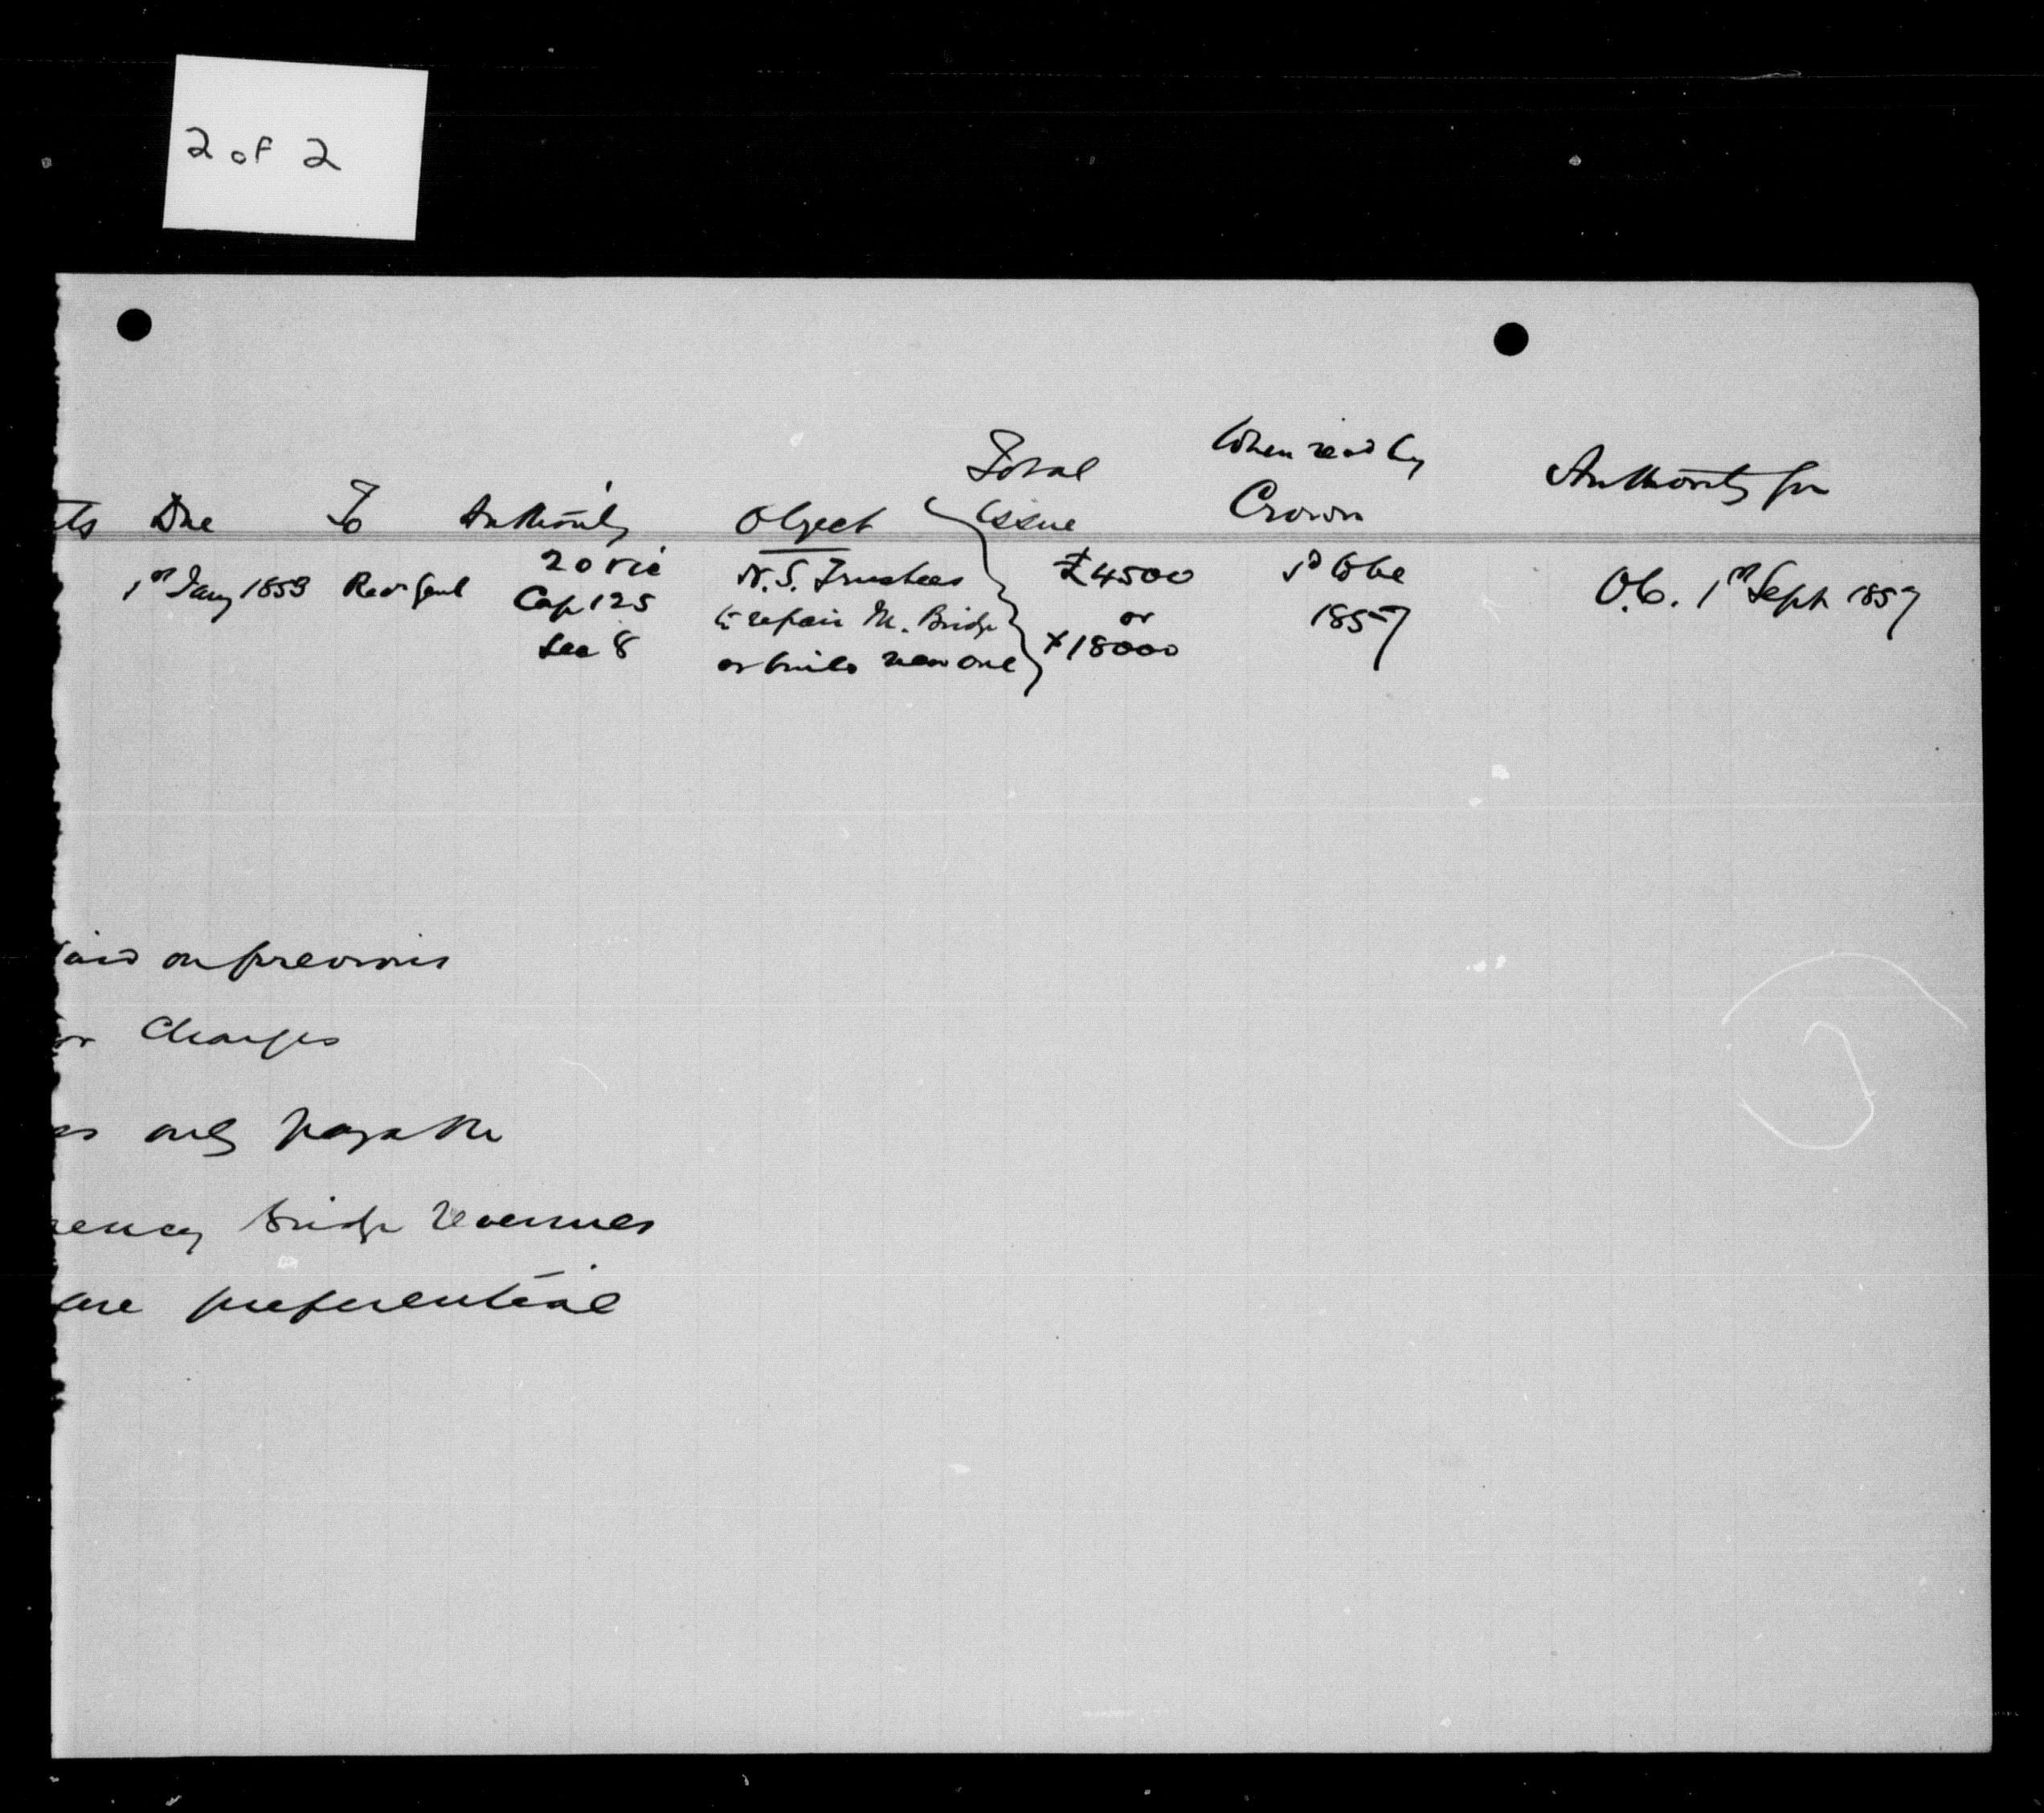 2 of 2
Total When recd by Authority for
ts Due To Authority Object Issue Crown
1st Jany 1859 Rec. Genl 20 Vic N.S. Trustees £4500 1857 O.C. 1st Sept 1857
Cap 125 to repair M. Bridge or
Sec 8 or build new one $18000
aid on previous
or Charges
es only payable
ency Bridge Revenues
are preferential